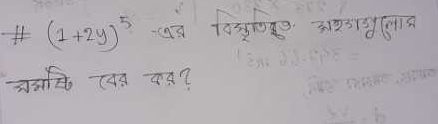 # (1+2y)⁵ -এর বিস্তৃতিতে সহগগুলোর
সমষ্টি বের কর?